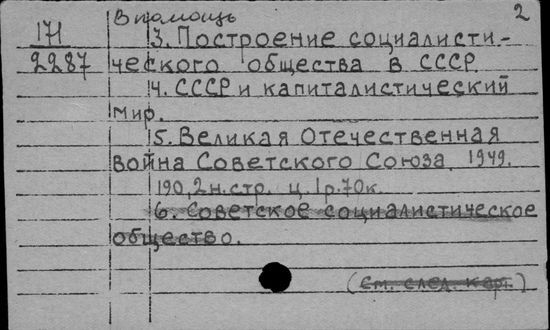 В помощь 2
171 3. Построение социалисти-
2287 ческого общества в СССР.
4. СССР и капиталистический
мир.
5. Великая Отечественная
война Советского Союза. 1949.
190, 2 н. стр. ц. 1 р. 70 к.
6. Советское социалистическое
общество.
(См. след. кар.)